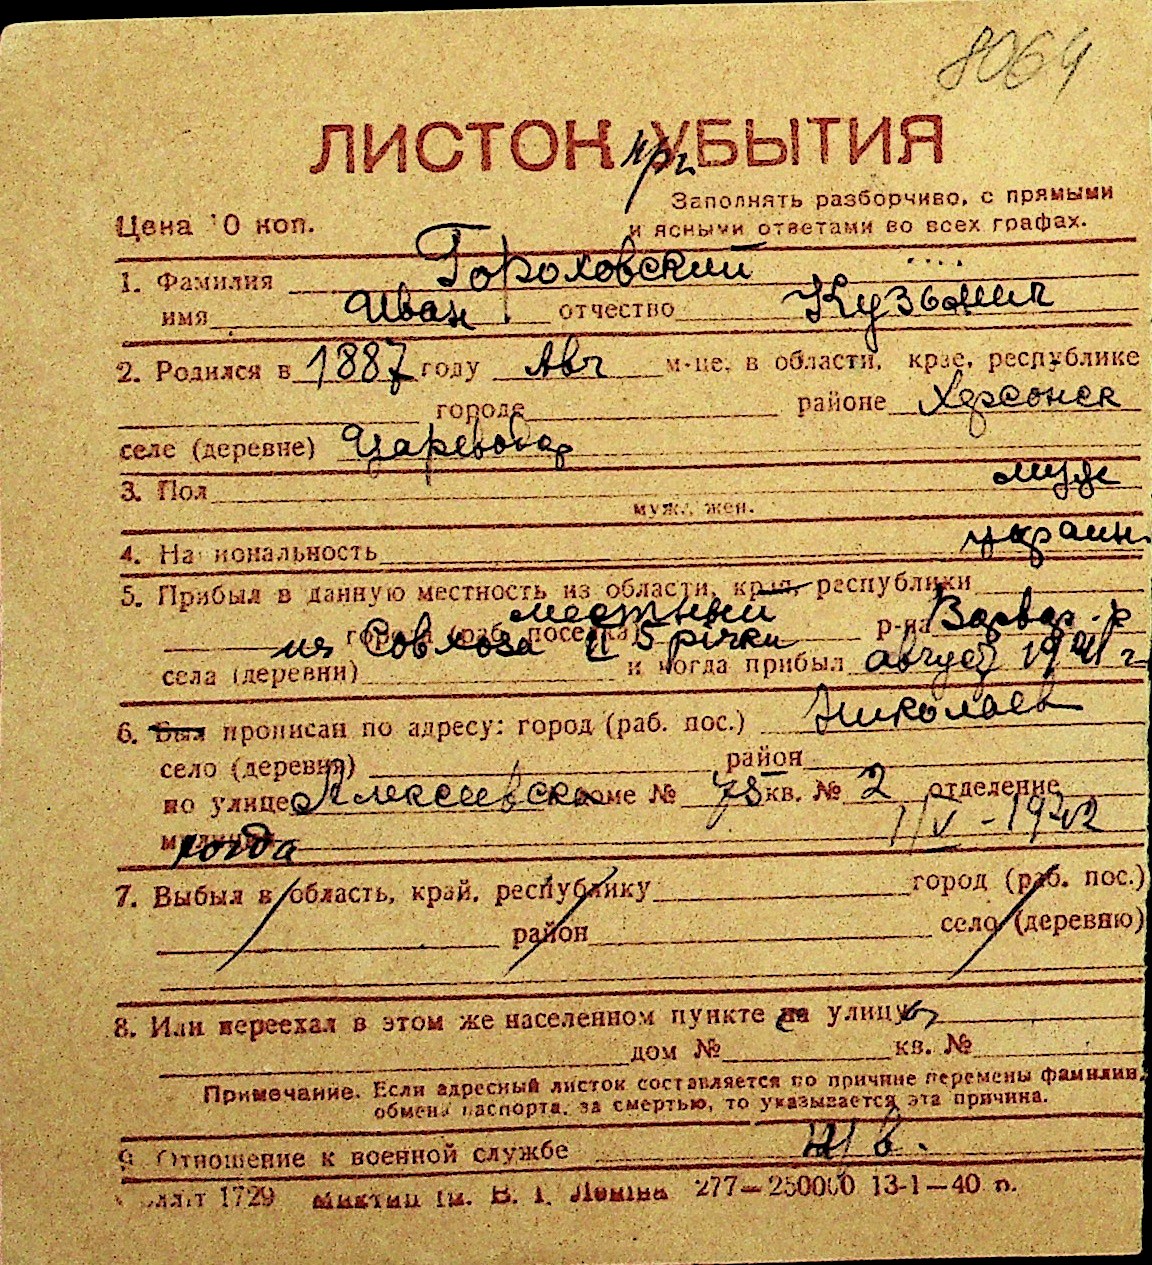 8064
ЛИСТОК при УБЫТИЯ
Заполнять разборчиво, с прямыми
Цена 10 коп. и ясными ответами во всех графах.
1. Фамилия Гороховский
имя Иван отчество Кузьмич
2. Родился в 1887 году Авг м-це, в области, крае, республике
городе районе Херсонск
селе (деревне) Царевода�
3. Пол муж
муж., жен.
4. Национальность украин.
5. Прибыл в данную местность из области, края, республики
местный
города (раб. поселка) р-на Варвар. р
из Совхоза 5 річки
села (деревни) и когда прибыл август 1941 г
6. Был прописан по адресу: город (раб. пос.) Николаев
село (деревня) район
по улице Алексеевской доме № 78 кв. № 2 отделение
милиции когда 1/IV - 1942
7. Выбыл в область, край, республику город (раб. пос.)
район село (деревню)
8. Или переехал в этом же населенном пункте на улицу
дом № кв. №
Примечание. Если адресный листок составляется по причине перемены фамилии,
обмена паспорта, за смертью, то указывается эта причина.
9. Отношение к военной службе н/в.
1729 им. В. І. Леніна 277—250000 13-1—40 п.